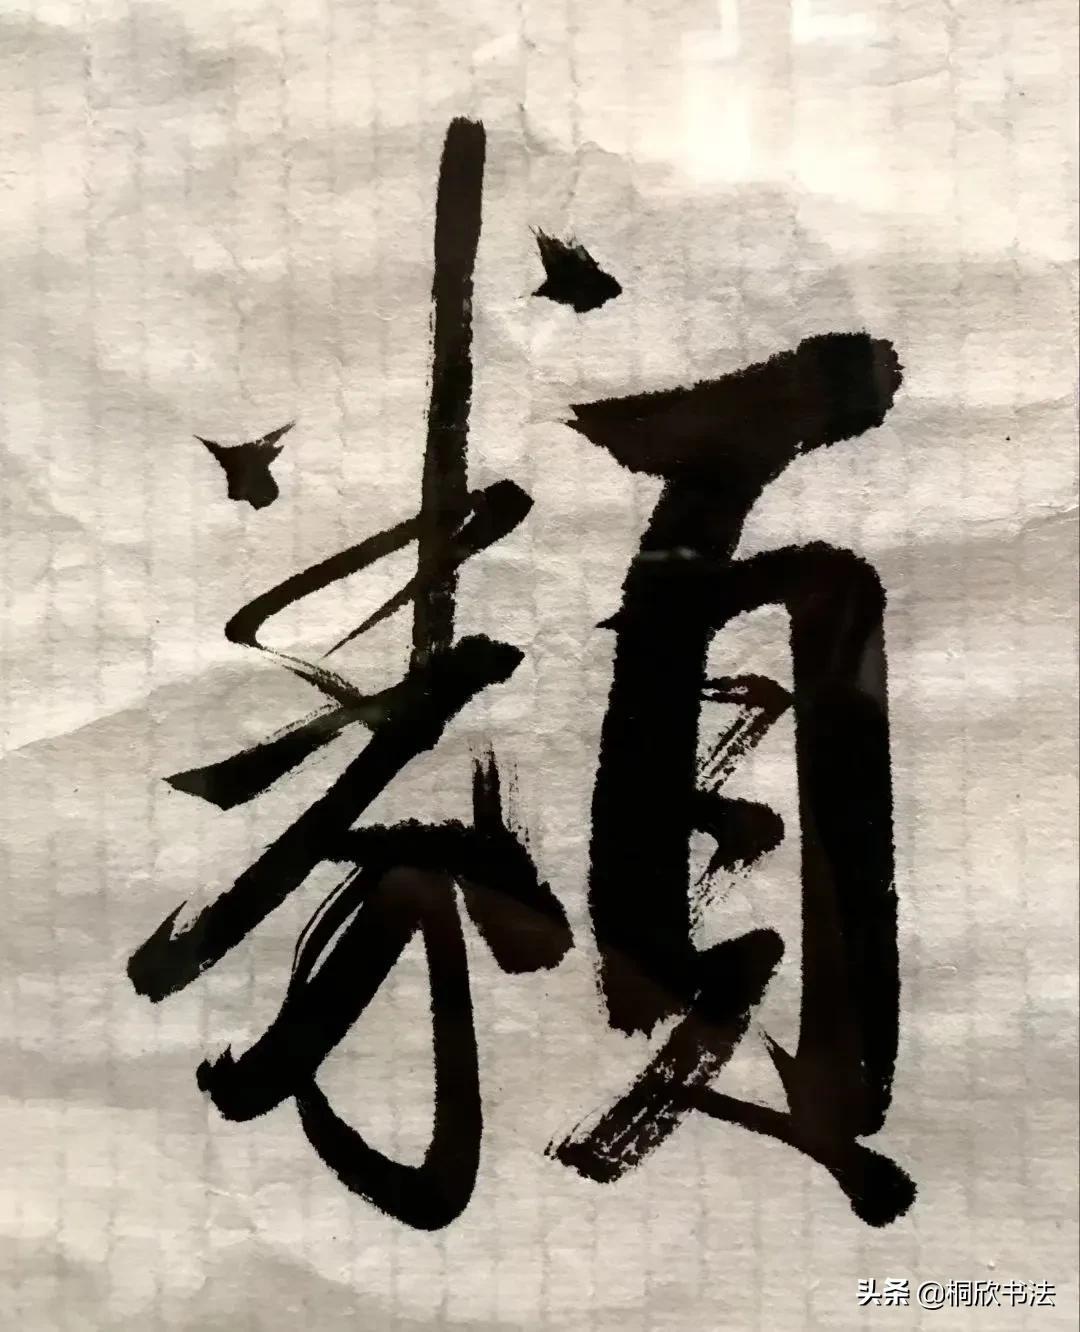 類
头条 @桐欣书法